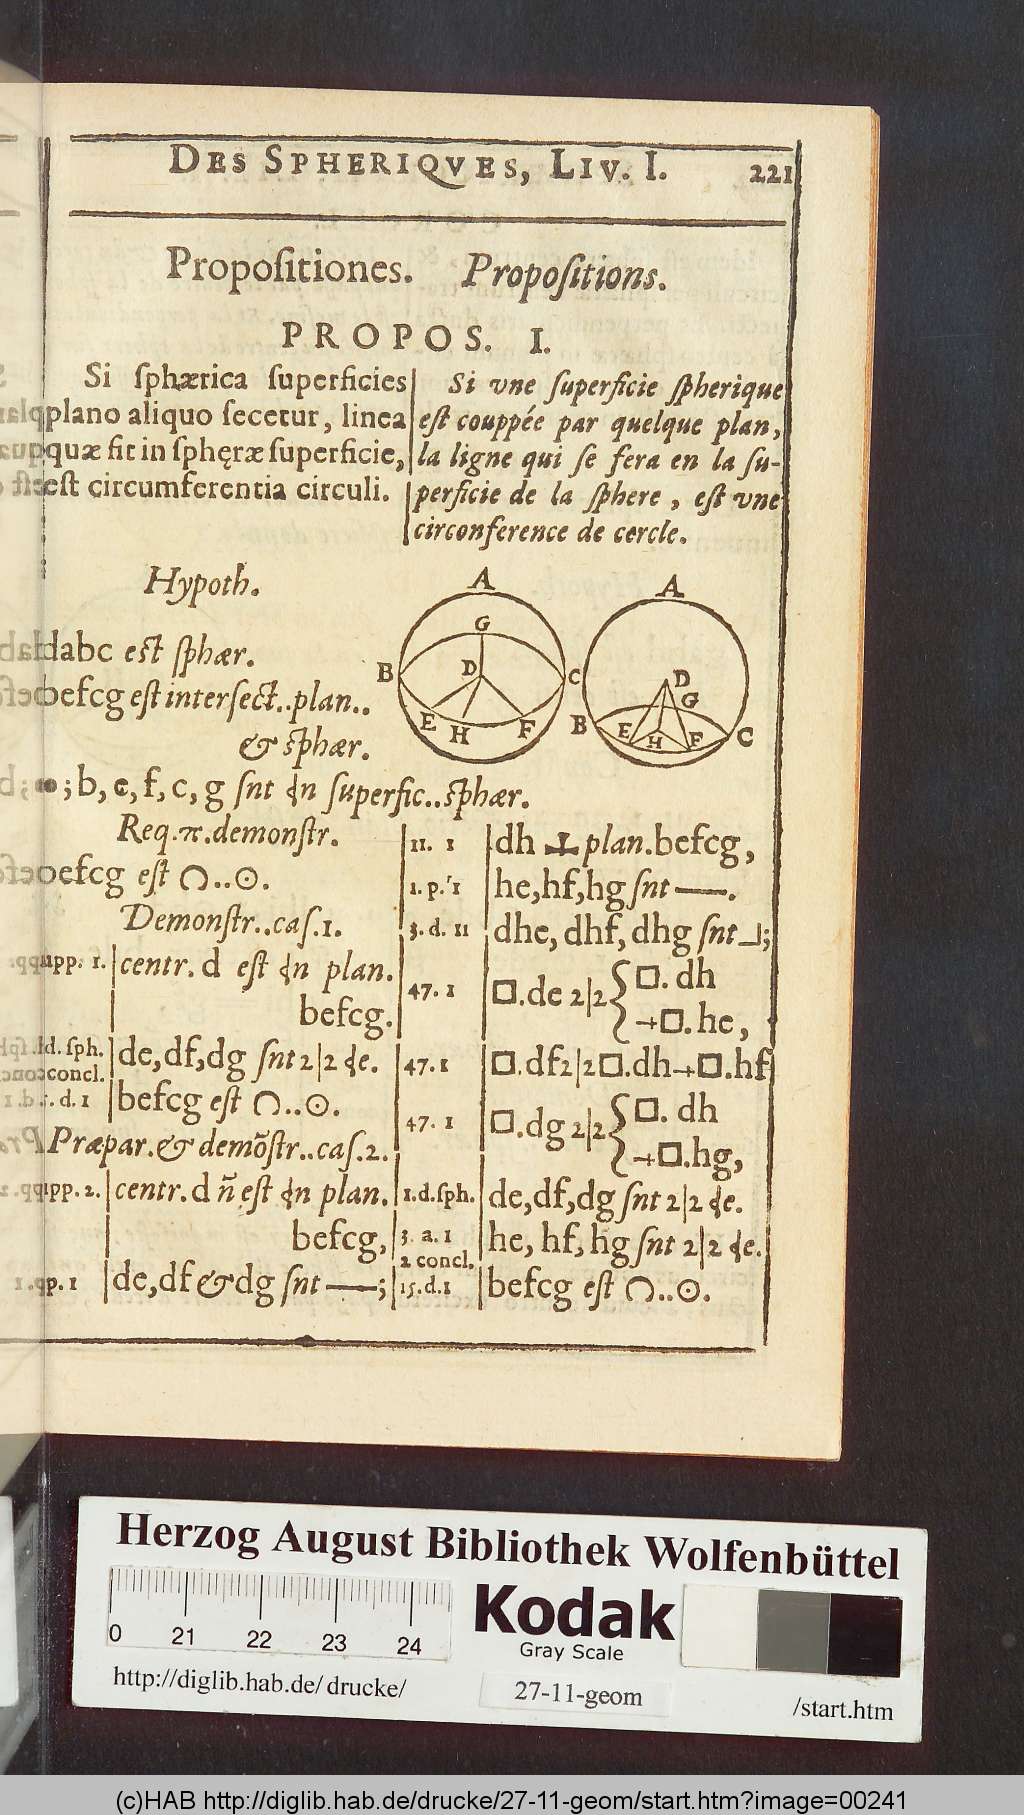 DES SPHERIQVES, LIV. I. 221
Propoſitiones. Propoſitions.
PROPOS. I.
Si ſphærica ſuperficies
plano aliquo ſecetur, linea
quæ fit in ſphęræ ſuperficie,
eſt circumferentia circuli.
Si vne ſuperficie ſpherique
eſt couppée par quelque plan,
la ligne qui ſe fera en la ſu-
perficie de la ſphere, eſt vne
circonference de cercle.
Hypoth.
abc eſt ſphær.
befcg eſt interſect..plan..
& ſphær.
A
G
B D C
E H F
A
D
G
B E H F C
b, e, f, c, g ſnt in ſuperfic..ſphær.
Req.π.demonſtr.
befcg eſt ◠..⊙.
Demonſtr..caſ.1.
ſupp. 1. centr. d eſt in plan.
befcg.
d. ſph. de, df, dg ſnt 2|2 ɖe.
concl.
15. d. 1 befcg eſt ◠..⊙.
Præpar. & demõſtr..caſ.2.
ſupp. 2. centr. d ñ eſt in plan.
befcg,
1. p. 1 de, df & dg ſnt —;
11. 1 dh ⊥ plan.befcg,
1. p. 1 he, hf, hg ſnt —.
3. d. 11 dhe, dhf, dhg ſnt ⅃;
47. 1 □.de 2|2 { □. dh
+□. he,
47. 1 □.df 2|2 □.dh+□.hf
47. 1 □.dg 2|2 { □. dh
+□.hg,
1.d.ſph. de, df, dg ſnt 2|2 ɖe.
3. a. 1 he, hf, hg ſnt 2|2 ɖe.
2 concl.
15.d.1 befcg eſt ◠..⊙.
Herzog August Bibliothek Wolfenbüttel
0 21 22 23 24
Kodak
Gray Scale
http://diglib.hab.de/drucke/ 27-11-geom /start.htm
(c)HAB http://diglib.hab.de/drucke/27-11-geom/start.htm?image=00241